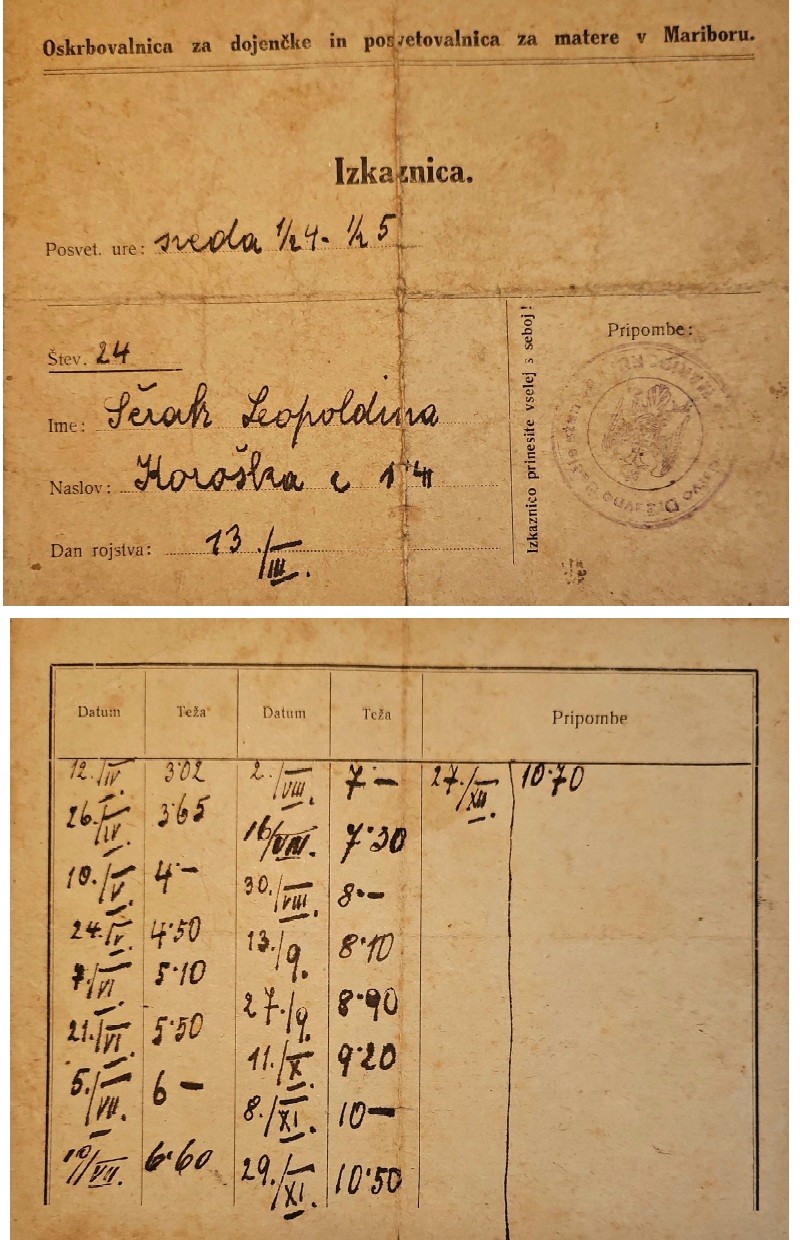 Oskrbovalnica za dojenčke in posvetovalnica za matere v Mariboru.
Izkaznica.
Posvet. ure: sreda 1/2 4 - 1/2 5
Štev. 24
Ime: Leopoldina
Naslov: Koroška c
Dan rojstva: 13./III.
Izkaznico prinesite vselej s seboj!
Pripombe:
Datum Teža Datum Teža Pripombe
12./IV. 3·02 2./VIII. 7·— 27./XII. 10·70
26./IV. 3·65 16/VIII. 7·30
10./V. 4·— 30./VIII. 8·—
24./V. 4·50 13./9. 8·10
7./VI 5·10 27./9. 8·90
21./VI 5·50 11./X. 9·20
5./VII. 6 — 8./XI. 10—
/VII. 6·60 29./XI. 10·50